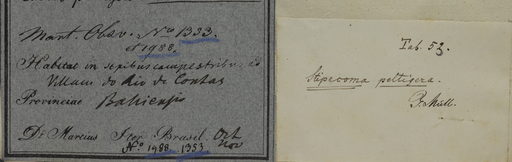 Mart. Obsv. Nro 1333.
et 1988.
Habitat in sepibus campestribus, ad
Villam do Rio de Contas
Provinciae Bahiensis
Dr Martius Iter Brasil. Oct
Nov
No. 1988. 1353
Tab. 53.
Stipecoma peltigera.
Müll.